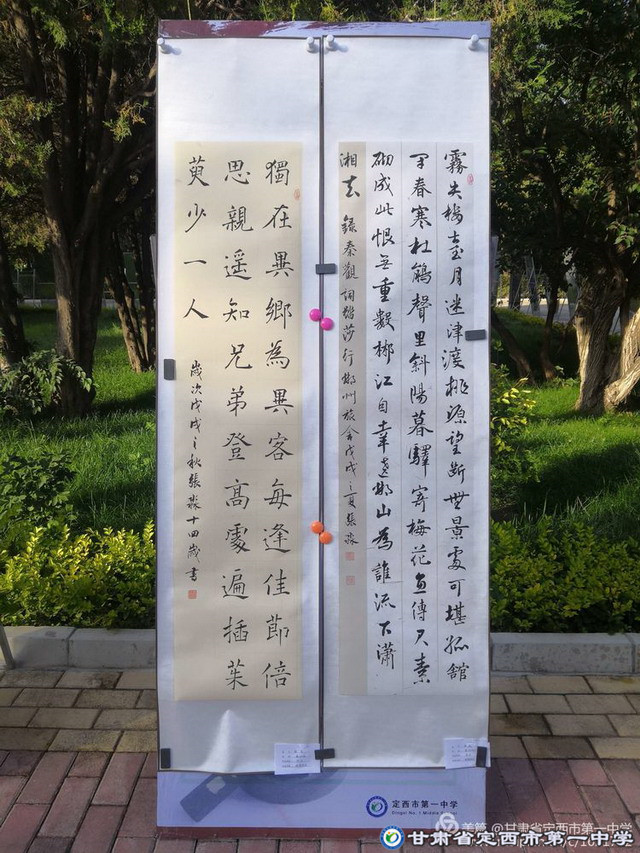 霧失樓臺月迷津渡桃源望斷無尋處可堪孤館
閉春寒杜鵑聲里斜陽暮驛寄梅花魚傳尺素
砌成此恨无重數郴江自幸遶郴山為誰流下瀟
湘去 錄秦觀詞踏莎行郴州旅舍戊戌之夏張淼
獨在異鄉為異客每逢佳節倍
思親遥知兄弟登高處遍插茱
萸少一人
歲次戊戌之秋張淼十四歲書
定西市第一中学
Dingxi No. 1 Middle School
美篇 @甘肃省定西市第一中学
甘肃省定西市第一中学